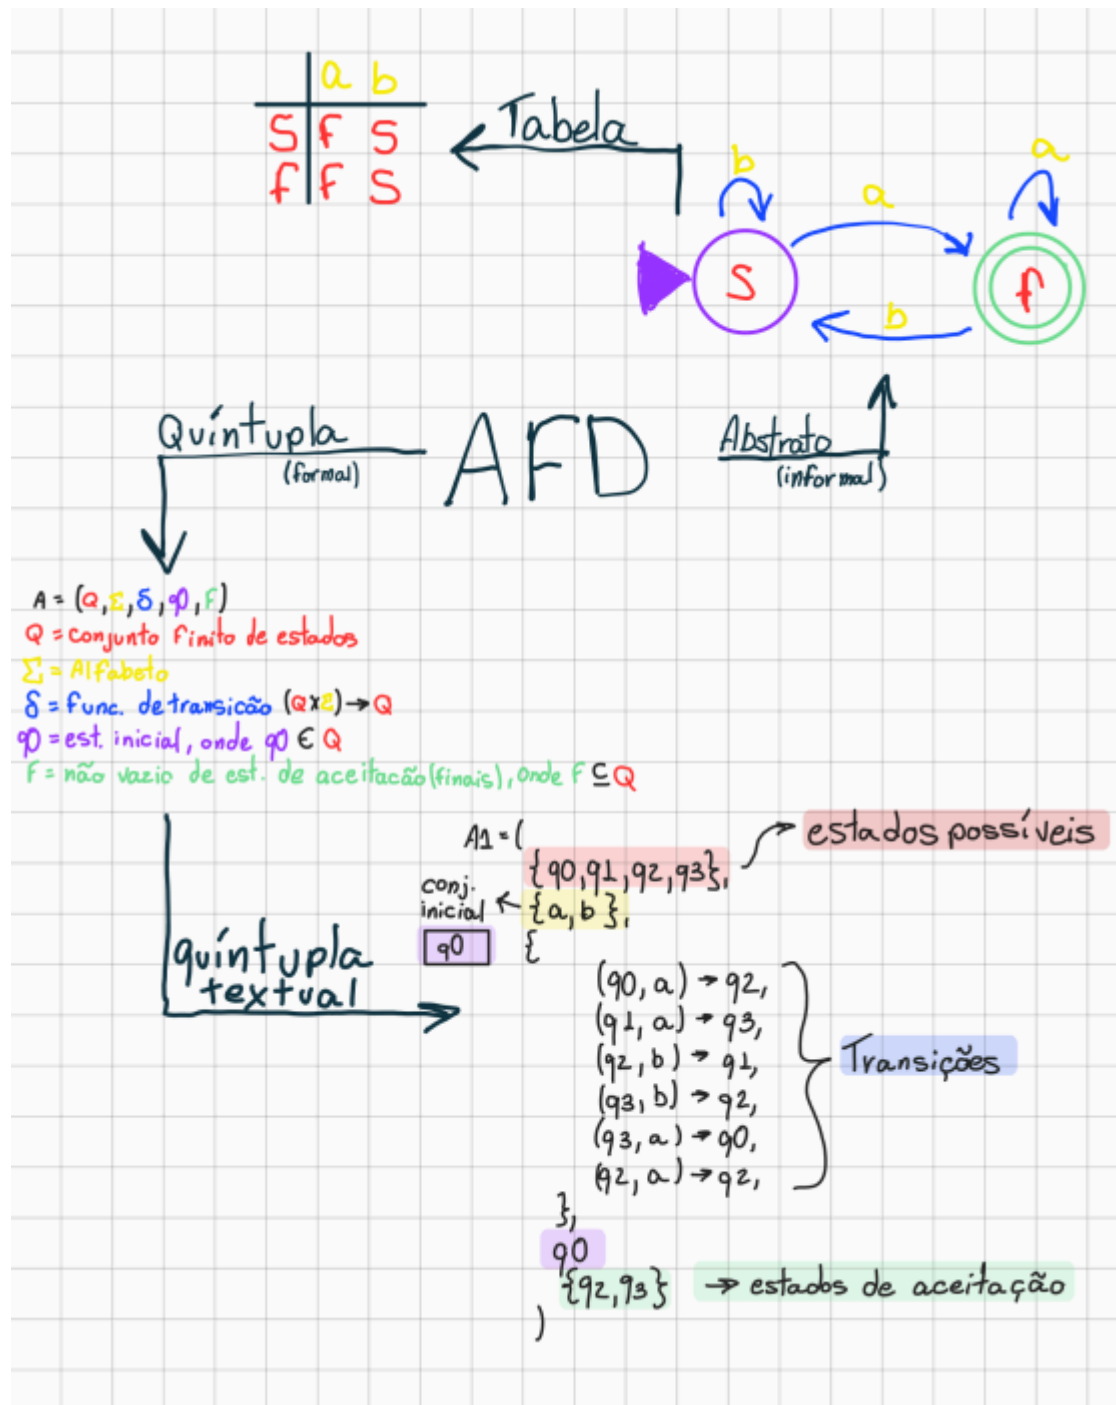 a b
S F S
f F S
Tabela
b
a
a
S
f
b
Quíntupla
(formal)
AFD
Abstrato
(informal)
A = (Q, Σ, δ, q0, F)
Q = conjunto finito de estados
Σ = Alfabeto
δ = func. de transição (Q x Σ) → Q
q0 = est. inicial, onde q0 ∈ Q
F = não vazio de est. de aceitação (finais), onde F ⊆ Q
quíntupla
textual
A1 = (
{q0, q1, q2, q3}, → estados possíveis
conj.
inicial ← {a, b},
q0
{
(q0, a) → q2,
(q1, a) → q3,
(q2, b) → q1,
(q3, b) → q2,
(q3, a) → q0,
(q2, a) → q2,
Transições
},
q0
{q2, q3} → estados de aceitação
)